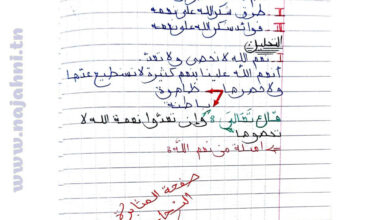 II- طرق شكر الله على نعمه
III- فوائد شكر الله على نعمه
التحليل:
I- نعم الله لا تحصى ولا تعد
أنعم الله علينا بنعم كثيرة لا نستطيع عدها
ولا حصرها ظاهرة
باطنة
قال تعالى: "وإن تعدوا نعمة الله لا
تحصوها"
أمثلة من نعم الله:
صفحة المثابرة
www.najahni.tn